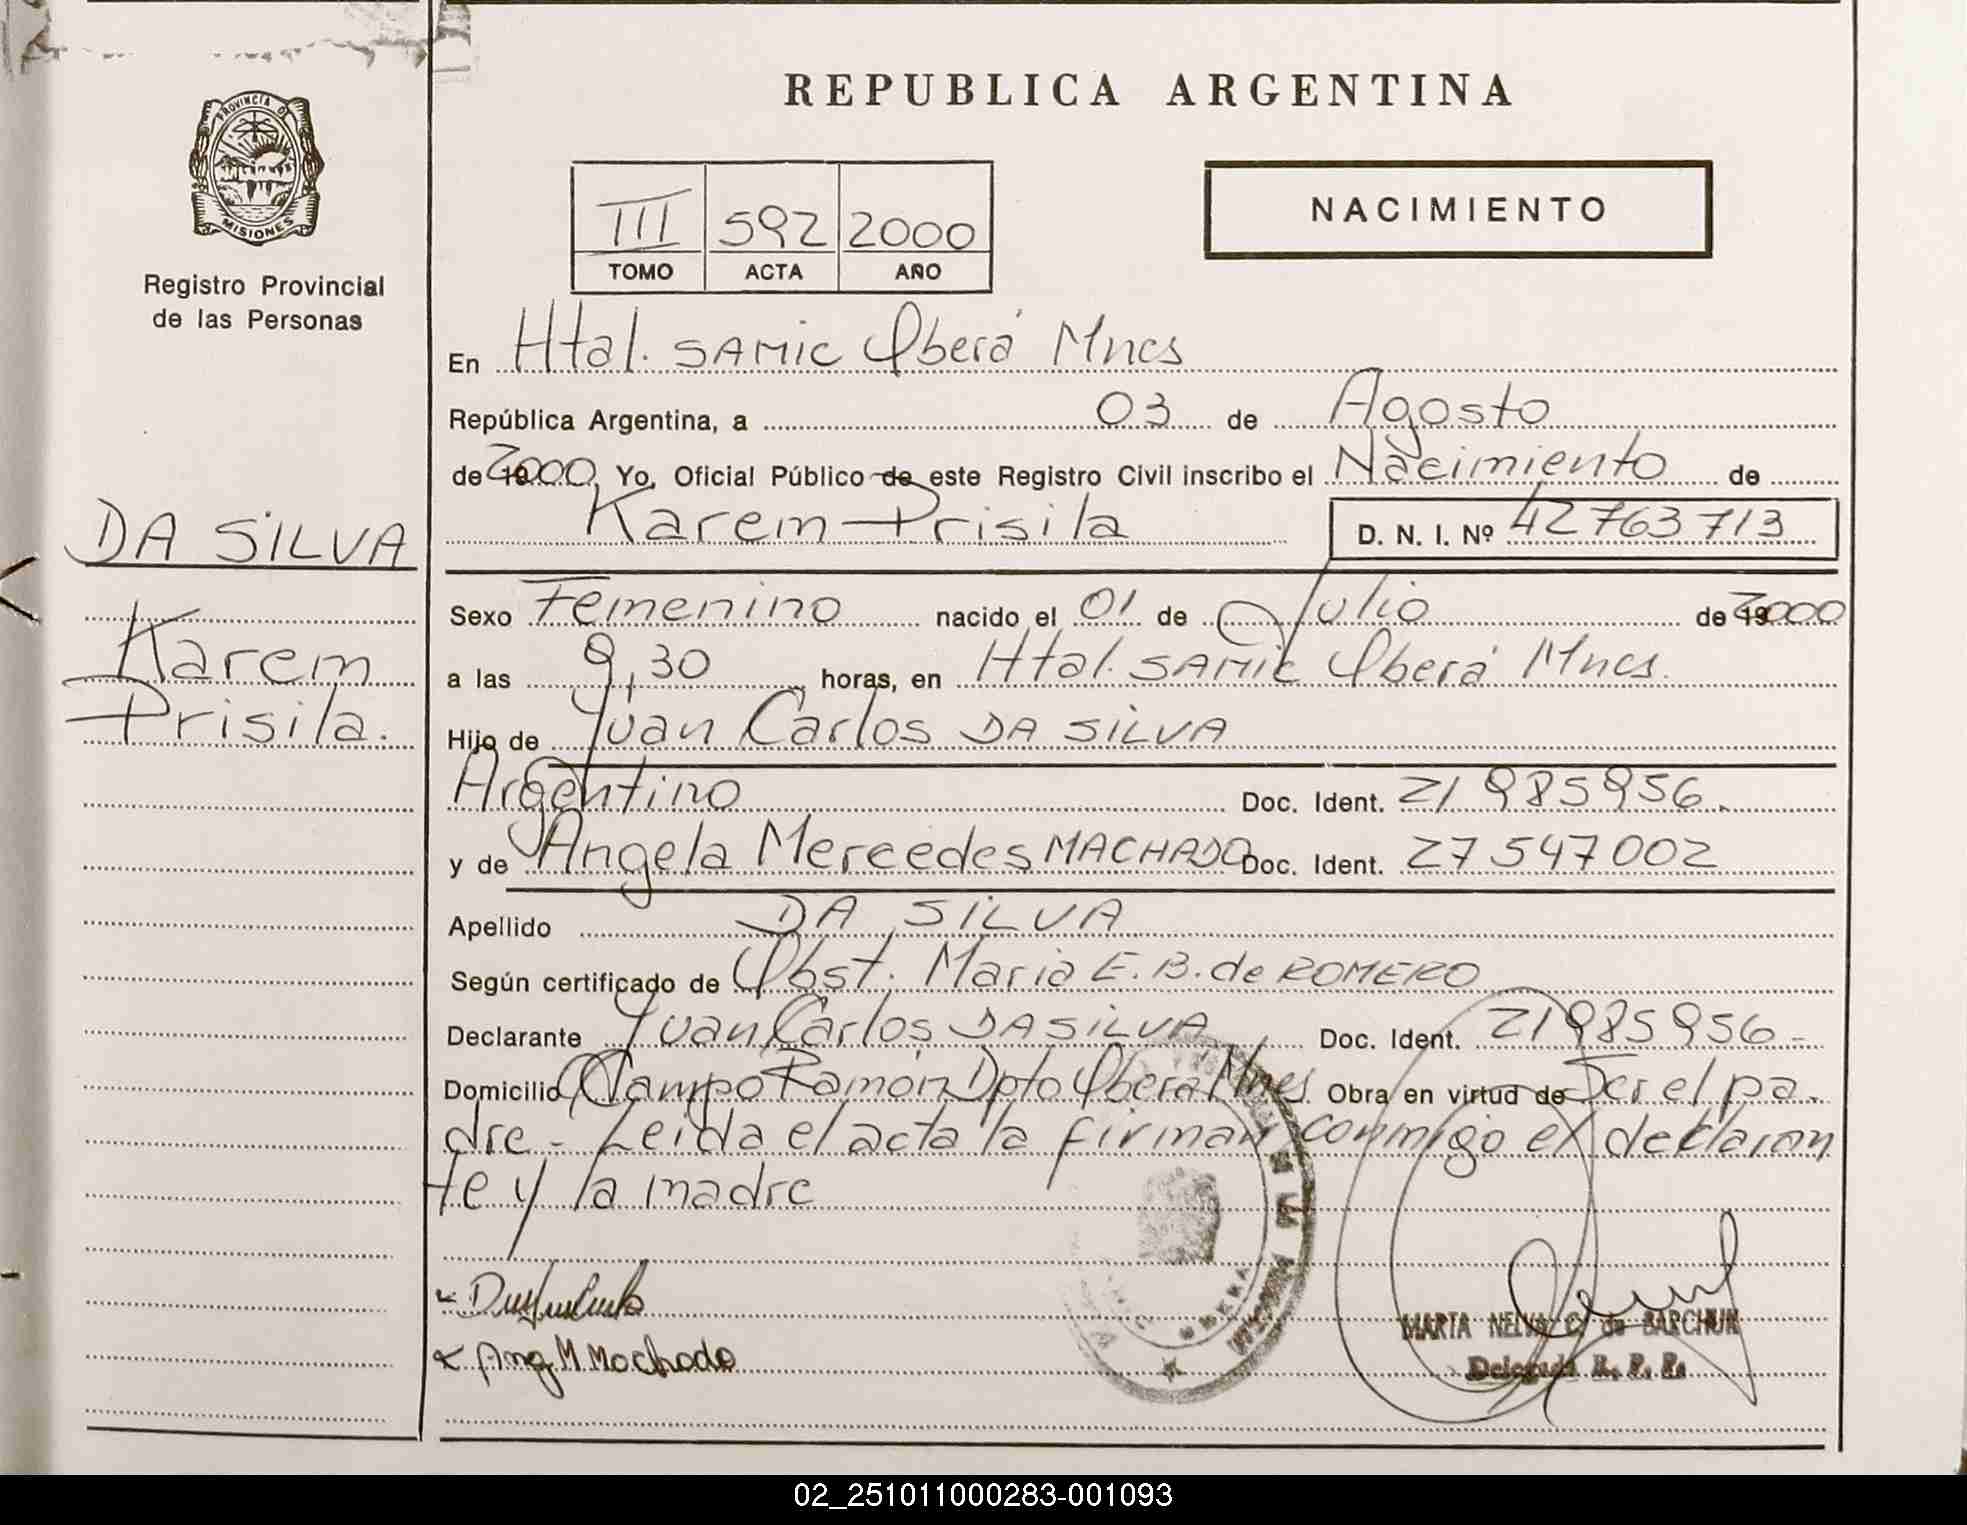 REPUBLICA ARGENTINA
PROVINCIA DE
MISIONES
Registro Provincial
de las Personas
III 592 2000
TOMO ACTA AÑO
NACIMIENTO
En Htal. SAMIC Oberá Mnes
República Argentina, a 03 de Agosto
de 2000 Yo, Oficial Público de este Registro Civil inscribo el Nacimiento de
Karem Prisila D. N. I. Nº 42763713
DA SILVA
Karem
Prisila.
Sexo Femenino nacido el 01 de Julio de 2000
a las 9,30 horas, en Htal. SAMIC Oberá Mnes.
Hijo de Juan Carlos DA SILVA
Argentino Doc. Ident. 21985956.
y de Angela Mercedes MACHADO Doc. Ident. 27547002
Apellido DA SILVA
Según certificado de Obst. Maria E. B. de ROMERO
Declarante Juan Carlos DA SILVA Doc. Ident. 21985956-
Domicilio Campo Ramón Dpto Oberá Mnes. Obra en virtud de Ser el pa-
dre - Leida el acta la firman conmigo el declaran
te y la madre
Ang M Machado
MARTA NELVA C. de BARCHUK
Delegada R. P. P.
02_251011000283-001093